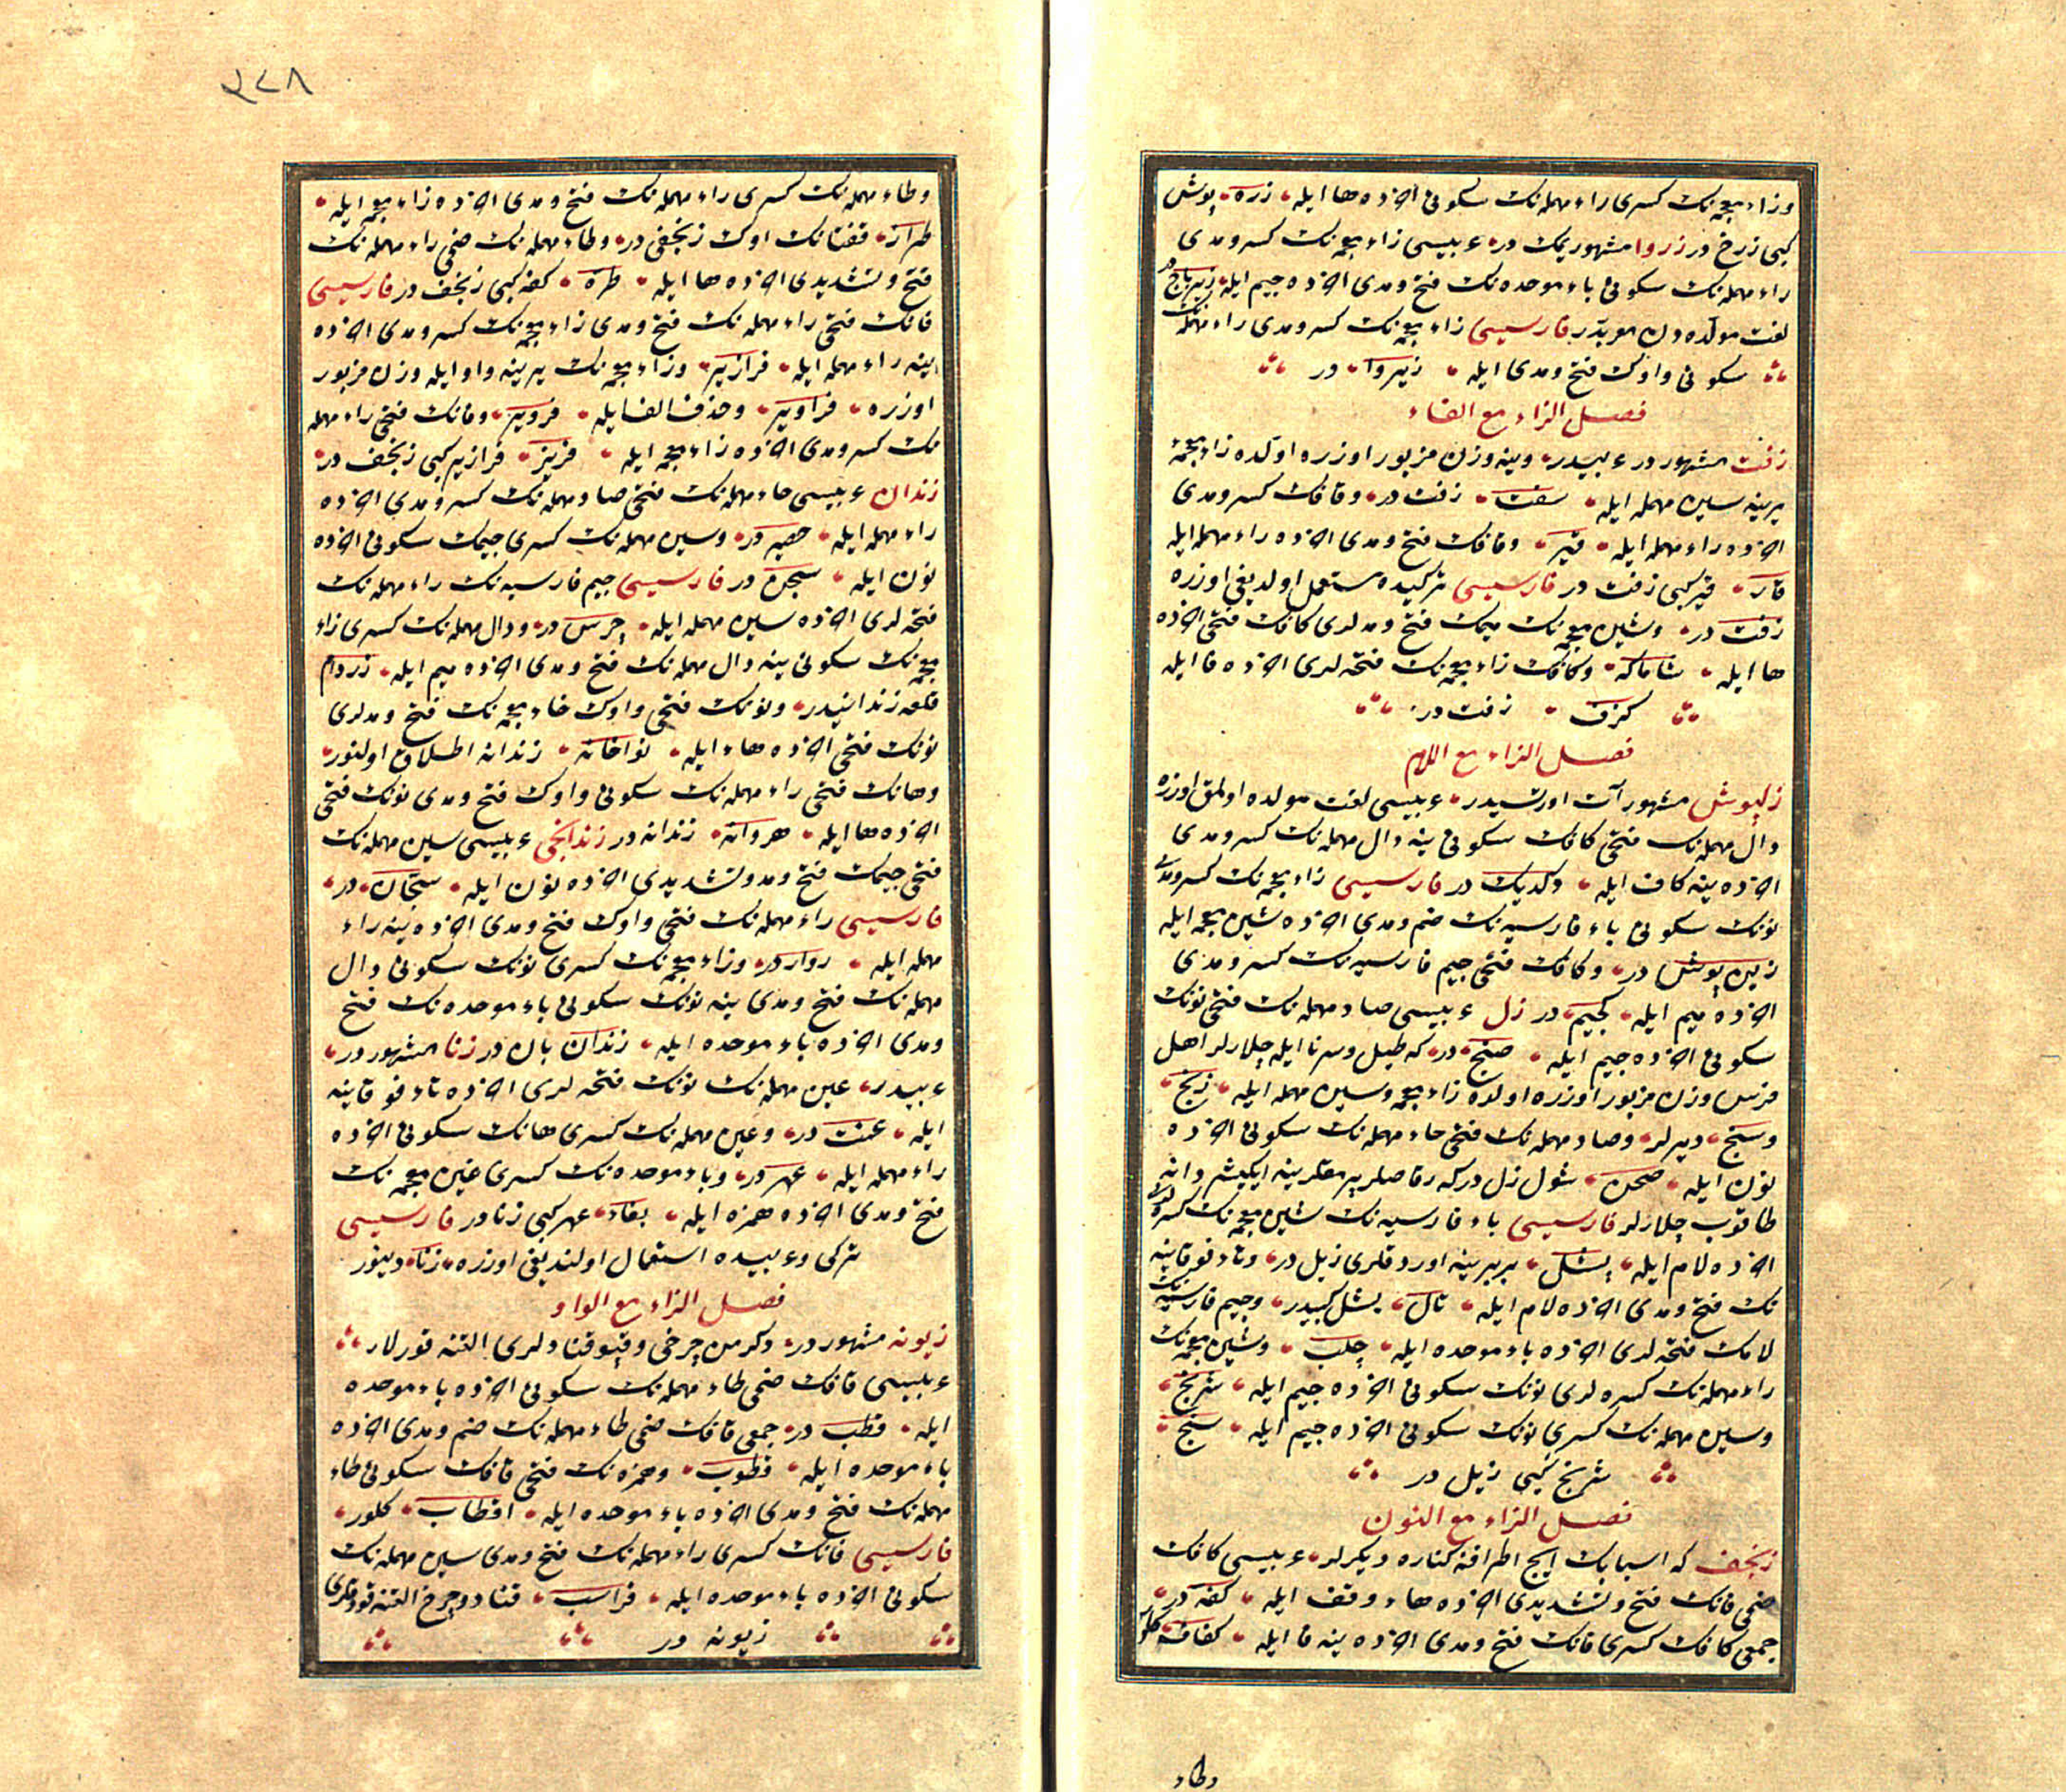 وزاء معجمه‌نك كسری راء مهمله‌نك سكونی آخزده ها ایله زره پوش
كبی زرخ در زروا مشهور یمك در عربیسی زاء معجمه‌نك كسر ومدی
راء مهمله‌نك سكونی باء موحده‌نك فتح ومدی آخرده جیم ایله زیرباج در
لغت مولده دن معربدر فارسیسی زاء معجمه‌نك كسر ومدی راء مهمله‌نك
سكونی واوك فتح ومدی ایله زیروا در
فصل الزاء مع الفاء
زفت مشهور در عربیدر وینه وزن مزبور اوزره اولده زاء معجمه
یرینه سین مهمله ایله سفت زفت در وقافك كسر ومدی
آخرده راء مهمله ایله قیر وقافك فتح ومدی آخرده راء مهمله ایله
قار قیر كبی زفت در فارسیسی تركیده مستعمل اولدیغی اوزره
زفت در وشین معجمه‌نك میمك فتح ومدلری كافك فتحی آخرده
ها ایله شاماكه وكافك زاء معجمه‌نك فتحه‌لری آخرده فا ایله
كزف زفت در
فصل الزاء مع اللام
زلپوش مشهور آت اورتسیدر عربیسی لغت مولده اولمق اوزره
دال مهمله‌نك فتحی كافك سكونی ینه دال مهمله‌نك كسر ومدی
آخرده ینه كاف ایله دكدیك در فارسیسی زاء معجمه‌نك كسر ومدی
نونك سكونی باء فارسیه‌نك ضم ومدی آخرده شین معجمه ایله
زین پوش در وكافك فتحی جیم فارسیه‌نك كسر ومدی
آخرده میم ایله كجیم در زل عربیسی صاد مهمله‌نك فتحی نونك
سكونی آخرده جیم ایله صنج در كه طبل وسرنا ایله چلارلر اهل
فرس وزن مزبور اوزره اولده زاء معجمه وسین مهمله ایله زنج
وسنج دیرلر وصاد مهمله‌نك فتحی حاء مهمله‌نك سكونی آخرده
نون ایله صحن شول زل در كه رقاصلر پرمقلرینه ایكیشر دانه
طاقوب چلارلر فارسیسی باء فارسیه‌نك شین معجمه‌نك كسره‌لری
آخرده لام ایله پشل بربرینه اوردقلری زیل در وتاء فوقانیه
نك فتح ومدی آخرده لام ایله تال پشل كبیدر وجیم فارسیه‌نك
لامك فتحه‌لری آخرده باء موحده ایله چلب وشین معجمه‌نك
راء مهمله‌نك كسره‌لری نونك سكونی آخرده جیم ایله شرنج
وسین مهمله‌نك كسری نونك سكونی آخرده جیم ایله سنج
شرنج كبی زیل در
فصل الزاء مع النون
زنجف كه اسبابك ایچ اطرافنه كناره دیكرلر عربیسی كافك
ضمی فانك فتح وتشدیدی آخرده هاء وقف ایله كفه در
جمعی كافك كسری فانك فتح ومدی آخرده ینه فا ایله كفاف كلور
وطاء
٣٢٨
وطاء مهمله‌نك كسری راء مهمله‌نك فتح ومدی آخرده زاء معجمه ایله
طراز قفتانك اوك زنجفی در وطاء مهمله‌نك ضمی راء مهمله‌نك
فتح وتشدیدی آخرده ها ایله طره كفه كبی زنجف در فارسیسی
فانك فتحی راء مهمله‌نك فتح ومدی زاء معجمه‌نك كسر ومدی آخرده
ینه راء مهمله ایله فرازیر وزاء معجمه‌نك یرینه واو ایله وزن مزبور
اوزره فراویر وحذف الف ایله فرویر وفانك فتحی راء مهمله
نك كسر ومدی آخرده زاء معجمه ایله فریز فرازیر كبی زنجف در
زندان عربیسی حاء مهمله‌نك فتحی صاد مهمله‌نك كسر ومدی آخرده
راء مهمله ایله حصیر در وسین مهمله‌نك كسری جیمك سكونی آخرده
نون ایله سجن در فارسیسی جیم فارسیه‌نك راء مهمله‌نك
فتحه‌لری آخرده سین مهمله ایله چرس در ودال مهمله‌نك كسری زاء
معجمه‌نك سكونی ینه دال مهمله‌نك فتح ومدی آخرده میم ایله زردام
قلعه زندانیدر ونونك فتحی واوك خاء معجمه‌نك فتح ومدلری
نونك فتحی آخرده هاء ایله نواخانه زندانه اطلاق اولنور
وهانك فتحی راء مهمله‌نك سكونی واوك فتح ومدی نونك فتحی
آخرده ها ایله هروانه زندانه در زندانجی عربیسی سین مهمله‌نك
فتحی جیمك فتح ومد وتشدیدی آخرده نون ایله سجان در
فارسیسی راء مهمله‌نك فتحی واوك فتح ومدی آخرده ینه راء
مهمله ایله روار در وزاء معجمه‌نك كسری نونك سكونی دال
مهمله‌نك فتح ومدی ینه نونك سكونی باء موحده‌نك فتح
ومدی آخرده باء موحده ایله زندان بان در زنا مشهور در
عربیدر عین مهمله‌نك نونك فتحه‌لری آخرده تاء فوقانیه
ایله عنت در وعین مهمله‌نك كسری هانك سكونی آخرده
راء مهمله ایله عهر در وباء موحده‌نك كسری غین معجمه‌نك
فتح ومدی آخرده همزه ایله بغاء عهر كبی زنا در فارسیسی
تركی وعربیده استعمال اولندیغی اوزره زنا دینور
فصل الزاء مع الواو
زیونه مشهور در دكرمن چرخی وقپو قنادلری التنه قورلار
عربیسی قافك ضمی طاء مهمله‌نك سكونی آخرده باء موحده
ایله قطب در جمعی قافك ضمی طاء مهمله‌نك ضم ومدی آخرده
باء موحده ایله قطوب وهمزه‌نك فتحی قافك سكونی طاء
مهمله‌نك فتح ومدی آخرده باء موحده ایله اقطاب كلور
فارسیسی فانك كسری راء مهمله‌نك فتح ومدی سین مهمله‌نك
سكونی آخرده باء موحده ایله فراسب قناد وچرخ التنه قودقلری
زیونه در